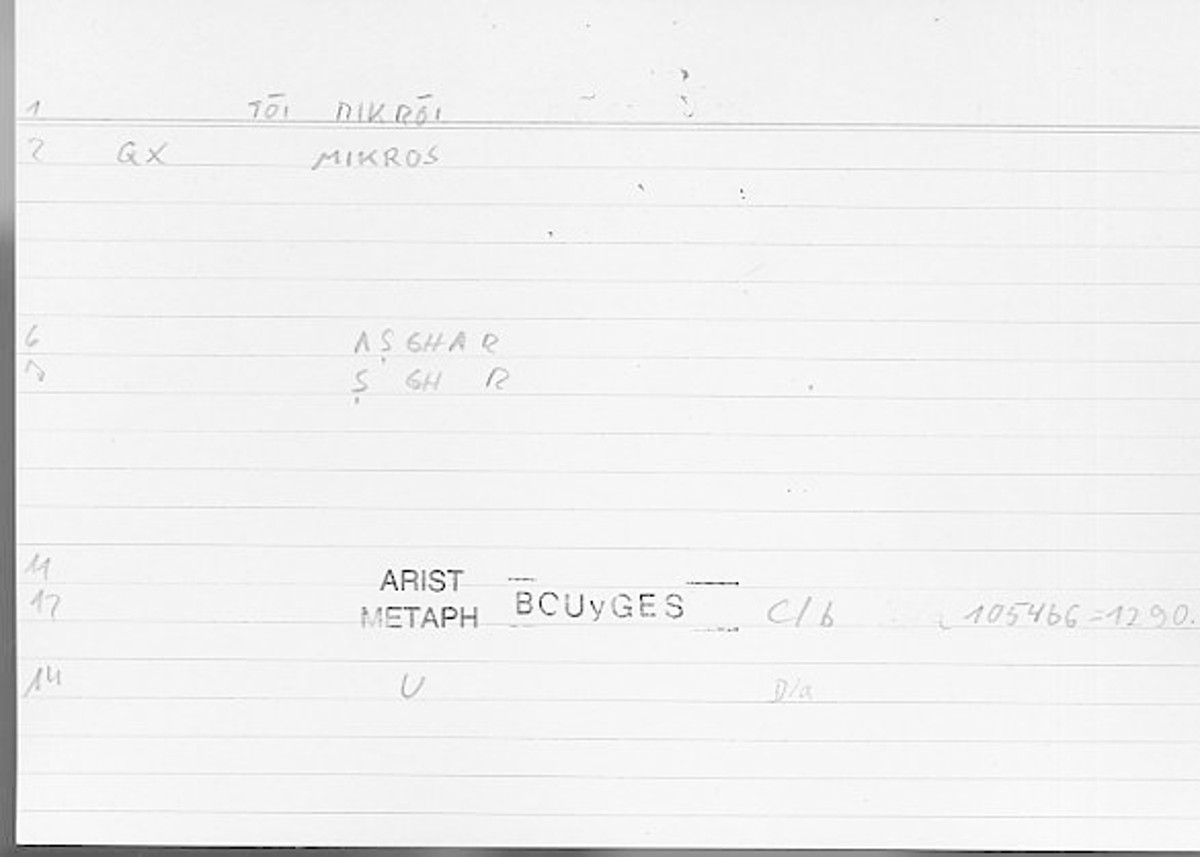 1 TŌI MIKRŌI
2 GX MIKROS
6 AṢGHAR
Ṣ GH R
11 ARIST
12 METAPH BCUyGES C/b 105466=1290.
14 U D/a